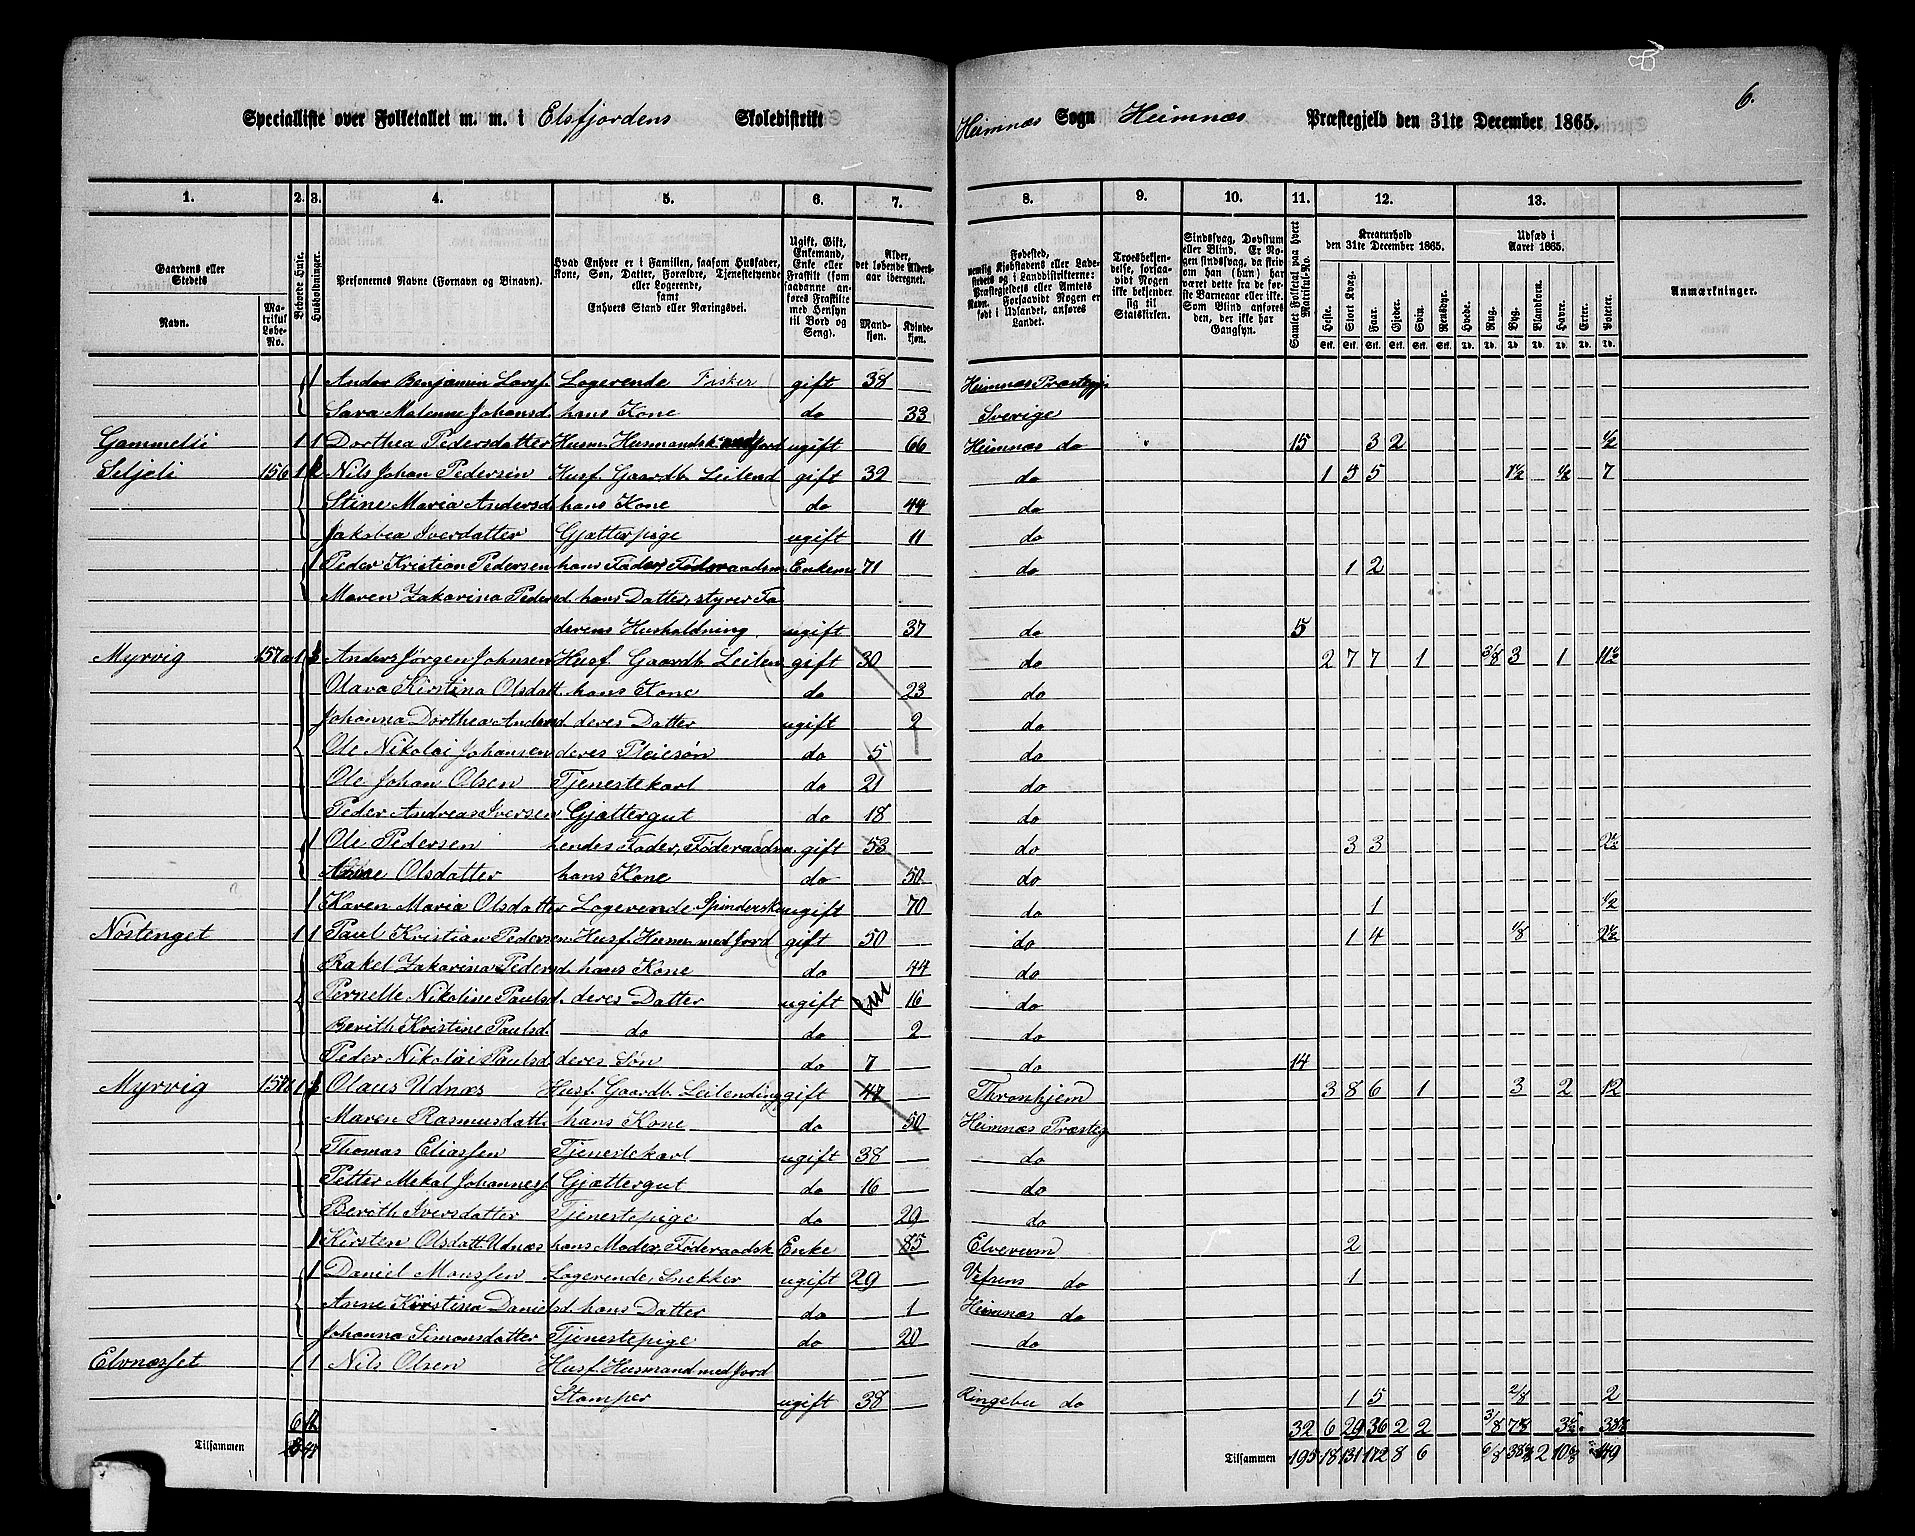 8
6.
Specialliste over Folketallet m. m. i Elsfjordens Skoledistrikt Hemnæs Sogn Hemnæs Præstegjeld den 31te December 1865.
1. 2. 3. 4. 5. 6. 7. 8. 9. 10. 11. 12. 13.
Gaardens eller Stedets
Navn.
Matrikul Løbe-No.
Beboede Huse.
Husholdninger.
Personernes Navne (Fornavn og Binavn).
Hvad Enhver er i Familien, saasom Husfader, Kone, Søn, Datter, Forældre, Tjenestetyende eller Logerende, samt Enhvers Stand eller Næringsvei.
Ugift, Gift, Enkemand, Enke eller Fraskilt (som saadanne anføres Fraskilte med Hensyn til Bord og Seng).
Alder, det løbende Alders-aar iberegnet.
Mandkjøn. Kvindekjøn.
Fødested, nemlig Kjøbstadens eller Ladestedets og i Landdistrikterne: Præstegjeldets eller Amtets Navn. Forsaavidt Nogen er født i Udlandet, anføres Landet.
Troesbekjendelse, forsaavidt Nogen ikke bekjender sig til Statskirken.
Sindssvag, Døvstum eller Blind. Er Nogen sindssvag, da skrives om han (hun) har været dette fra de første Barneaar eller ikke. Som Blind anføres den, der ikke har Gangsyn.
Samlet Folketal paa hvert Matrikul-No.
Kreaturhold den 31te December 1865.
Heste. Stort Kvæg. Faar. Gjeder. Svin. Rensdyr.
Udsæd i Aaret 1865.
Hvede. Rug. Byg. Blandkorn. Havre. Erter. Poteter.
Anmærkninger.
1 Ander Benjamin Larsf. Logerende Fisker gift 38 Hemnæs Præstegj.
Sara Malenne Johansd. hans Kone do 33 Sverige
Gammelli 1 1 Dorthea Pedersdatter Husm. Husmandsk. med Jord ugift 66 Hemnæs do 15 3 2 1/2
Seljeli 156 1 Nils Johan Pedersen Husf. Gaardb. Leilend gift 32 do 1 5 5 1/2 7
Stine Maria Andersd. hans Kone do 44 do
Jakobea Iverdatter Gjætterpige ugift 11 do
1 Peder Kristian Pedersen hans Fader, Føderaadsm. Enkem. 71 do 1 2
Maren Zakarina Pedersd. hans Datter, styrer Fa
derens Husholdning ugift 37 do 5
Myrvig 157a 1 Anders Jørgen Johnsen Husf. Gaardb. Leilen gift 30 do 2 7 7 1 3/8 3 1 11 1/2
Olava Kirstina Olsdatt. hans Kone do 23 do
Johanna Dorthea Andersd. deres Datter ugift 2 do
Ole Nikolai Johansen deres Pleiesøn do 5 do
Ole Johan Olsen Tjenestekarl do 21 do
Peder Andreas Iversen Gjættergut do 18 do
1 Ole Pedersen hendes Fader, Føderaadsm. gift 53 do 3 3 2 1/2
Olsdatter hans Kone do 50 do
1 Karen Maria Olsdatter Logerende Spinderske ugift 70 do 1 1/2
Nøstenget 1 1 Paul Kristian Pedersen Husf. Husm. med Jord gift 50 do 1 4 1/8 2 1/2
Rakel Zakarina Pedersd. hans Kone do 44 do
Pernelle Nikoline Paulsd. deres Datter ugift 16 do
Berith Kristine Paulsd. do do 2 do
Peder Nikolai Paulsd deres Søn do 7 do 14
Myrvig 157b 1 Olaus Udnæs Husf. Gaardb. Leilending gift 47 Thronhjem 3 8 6 1 3 2 12
Maren Rasmusdatt. hans Kone do 50 Hemnæs Præsteg
Thomas Eliassen Tjenestekarl ugift 38 do
Petter Mekal Johannesf. Gjættergut do 16 do
Berith Iversdatter Tjenestepige do 29 do
1 Kirsten Olsdatt. Udnæs hans Moder, Føderaadsk. Enke 85 Elverum 2
1 Daniel Monssen Logerende, Snekker ugift 29 Vefsens do 1
Anne Kirstina Danielsd. hans Datter do 1 Hemnæs do
Johanna Simonsdatter Tjenestepige do 20 do
Elvnæsset 1 1 Nils Olsen Husf. Husmand med Jord
Stamper ugift 38 Ringebu do 1 5 2/8 2
6 12 32 6 29 36 2 2 3/8
Tilsammen Tilsammen 195 18 131 172 8 6 2 149